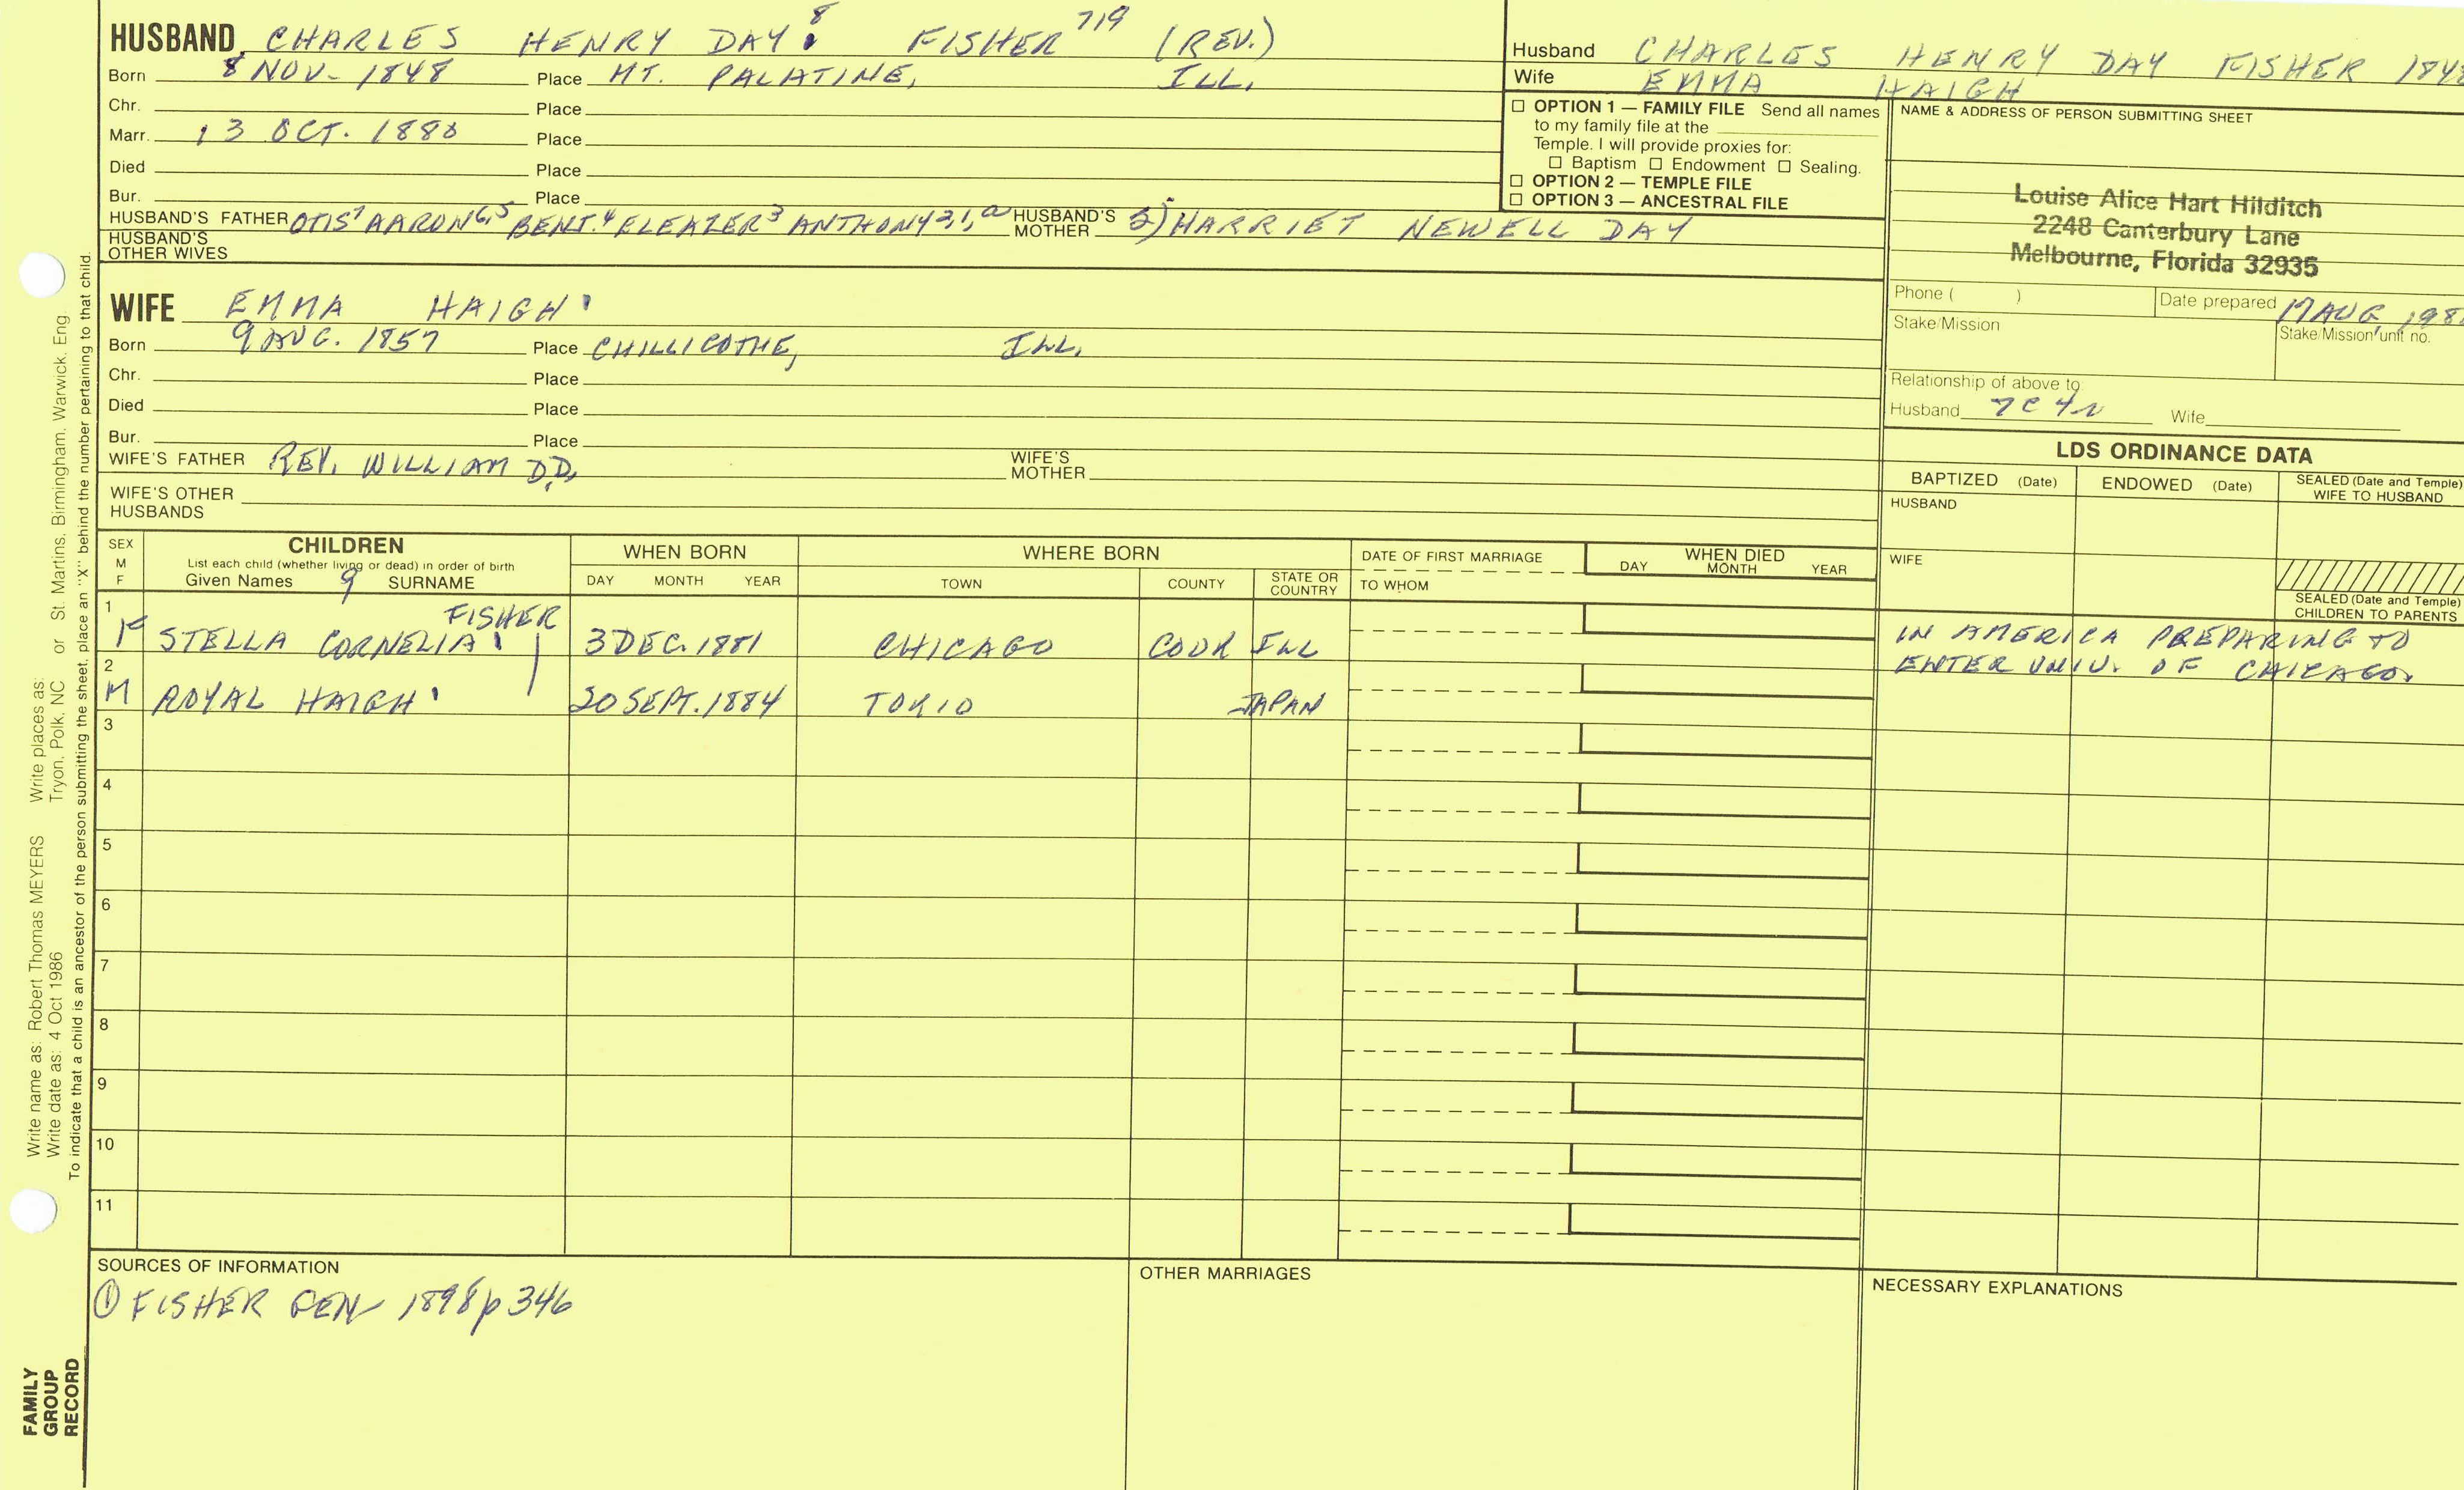 HUSBAND CHARLES HENRY DAY 8 FISHER 719 (REV.)
Born 8 NOV- 1848 Place MT. PALATINE, ILL.
Chr. Place
Marr. 13 OCT. 1880 Place
Died Place
Bur. Place
HUSBAND'S FATHER OTIS7 AARON6,5 BENJ.4 ELEAZER3 ANTHONY2,1,a HUSBAND'S MOTHER 2) HARRIET NEWELL DAY
HUSBAND'S OTHER WIVES
WIFE EMMA HAIGH
Born 9 AUG. 1857 Place CHILLICOTHE, ILL.
Chr. Place
Died Place
Bur. Place
WIFE'S FATHER REV. WILLIAM D.D. WIFE'S MOTHER
WIFE'S OTHER HUSBANDS
Husband CHARLES HENRY DAY FISHER 1848
Wife EMMA HAIGH
☐ OPTION 1 — FAMILY FILE Send all names
to my family file at the
Temple. I will provide proxies for:
☐ Baptism ☐ Endowment ☐ Sealing.
☐ OPTION 2 — TEMPLE FILE
☐ OPTION 3 — ANCESTRAL FILE
NAME & ADDRESS OF PERSON SUBMITTING SHEET
Louise Alice Hart Hilditch
2248 Canterbury Lane
Melbourne, Florida 32935
Phone ( ) Date prepared 17 AUG, 198
Stake/Mission Stake/Mission unit no.
Relationship of above to:
Husband 7C4R Wife
LDS ORDINANCE DATA
BAPTIZED (Date) ENDOWED (Date) SEALED (Date and Temple) WIFE TO HUSBAND
HUSBAND
WIFE
SEALED (Date and Temple) CHILDREN TO PARENTS
SEX M F CHILDREN
List each child (whether living or dead) in order of birth
Given Names 9 SURNAME
WHEN BORN
DAY MONTH YEAR
WHERE BORN
TOWN COUNTY STATE OR COUNTRY
DATE OF FIRST MARRIAGE
TO WHOM
WHEN DIED
DAY MONTH YEAR
1 F STELLA CORNELIA FISHER 3 DEC. 1881 CHICAGO COOK ILL
IN AMERICA PREPARING TO
ENTER UNIV. OF CHICAGO.
2 M ROYAL HAIGH 20 SEPT. 1884 TOKIO JAPAN
3
4
5
6
7
8
9
10
11
SOURCES OF INFORMATION
① FISHER GEN 1898 p 346
OTHER MARRIAGES
NECESSARY EXPLANATIONS
Write name as: Robert Thomas MEYERS Write places as: St. Martins, Birmingham, Warwick, Eng.
Write date as: 4 Oct 1986 Tryon, Polk, NC or
To indicate that a child is an ancestor of the person submitting the sheet, place an "X" behind the number pertaining to that child.
FAMILY
GROUP
RECORD